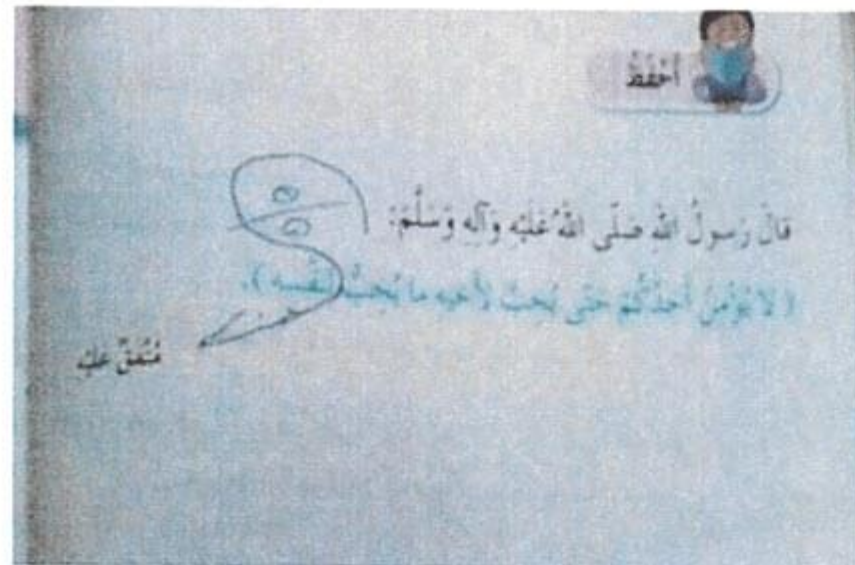 أَحْفَظُ
قَالَ رَسولُ اللهِ صَلَّى اللهُ عَلَيْهِ وَآلِهِ وَسَلَّمَ:
(لا يُؤْمِنُ أَحَدُكُمْ حَتَّى يُحِبَّ لِأَخيهِ ما يُحِبُّ لِنَفْسِهِ).
مُتَّفَقٌ عَلَيْهِ